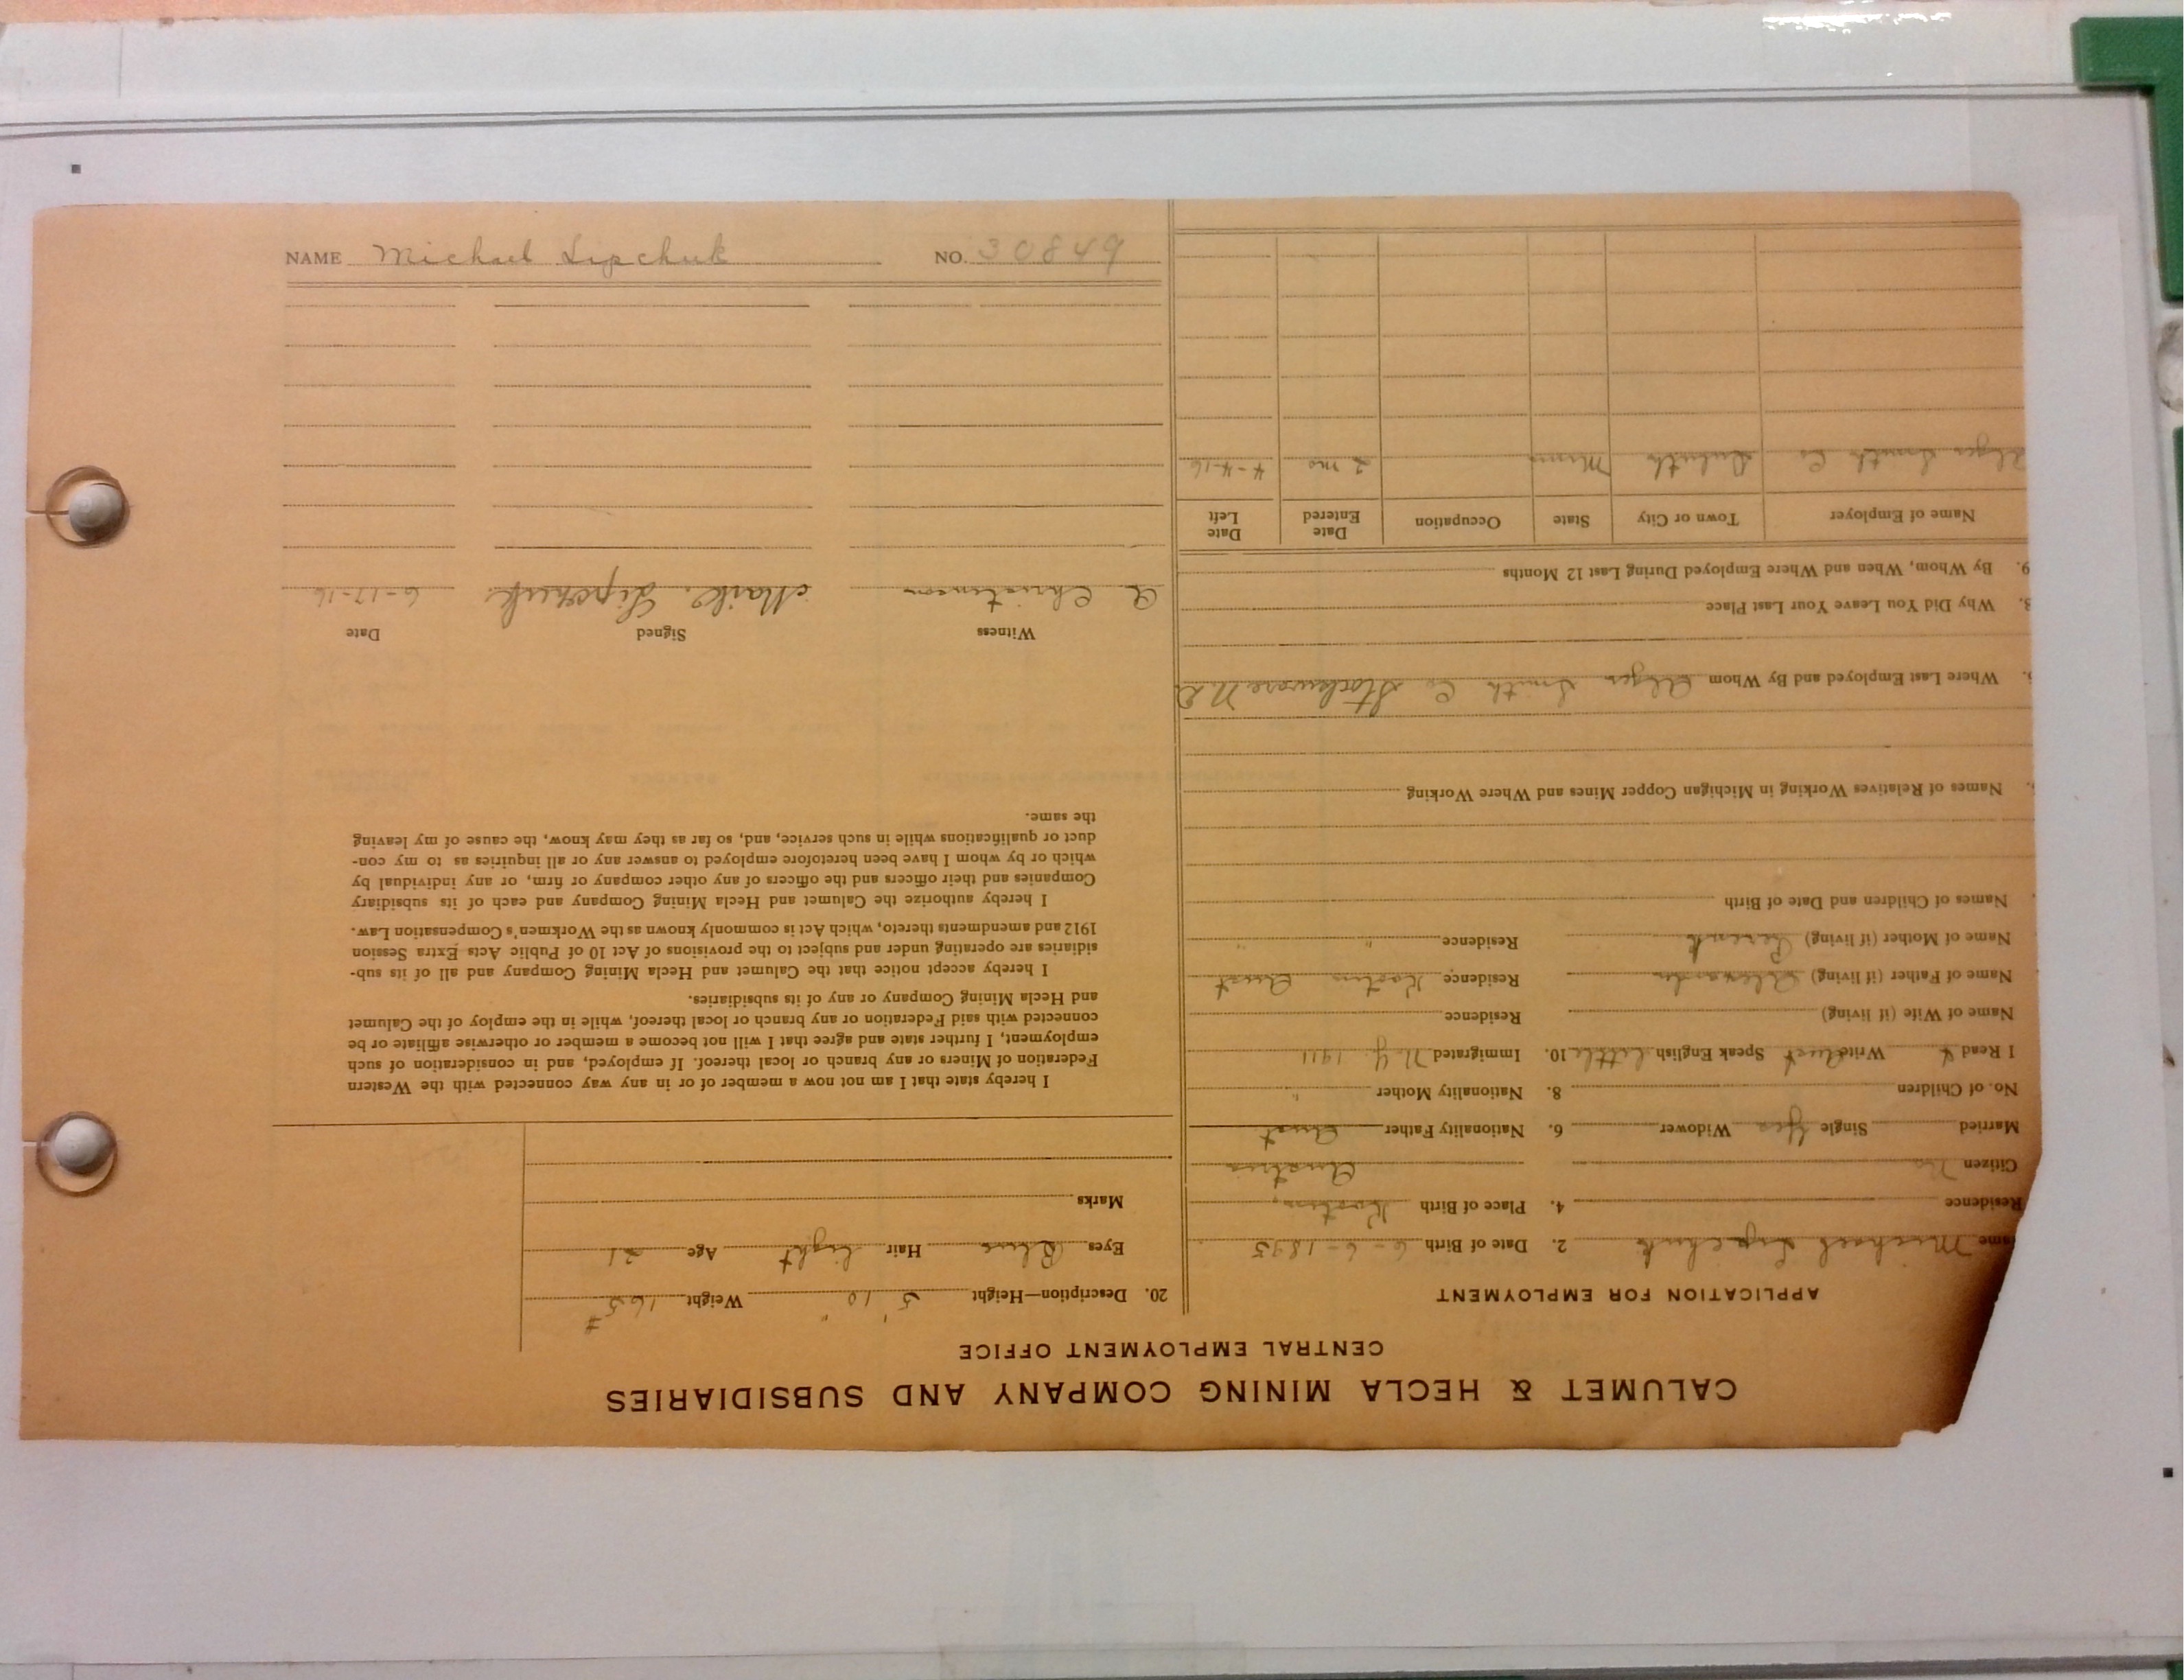 NAME Michael Lipchuk NO. 30849
CALUMET & HECLA MINING COMPANY AND SUBSIDIARIES
CENTRAL EMPLOYMENT OFFICE
APPLICATION FOR EMPLOYMENT
Name Michael Lipchuk 2. Date of Birth 6-6-1895
Residence 4. Place of Birth
Citizen No Austria
Married Single Yes Widower 6. Nationality Father Aust
No. of Children 8. Nationality Mother "
I Read Write Speak English little 10. Immigrated N.Y. 1911
Name of Wife (if living) Residence
Name of Father (if living) Alexander Residence Aust
Name of Mother (if living) Residence " "
Names of Children and Date of Birth
Names of Relatives Working in Michigan Copper Mines and Where Working
Where Last Employed and By Whom Alger Smith Co
Why Did You Leave Your Last Place
9. By Whom, When and Where Employed During Last 12 Months
Name of Employer Town or City State Occupation Date Entered Date Left
Alger Smith Co Duluth Minn 2 mo 4-4-16
20. Description—Height 5' 10" Weight 165#
Eyes Blue Hair light Age 21
Marks
I hereby state that I am not now a member of or in any way connected with the Western
Federation of Miners or any branch or local thereof. If employed, and in consideration of such
employment, I further state and agree that I will not become a member or otherwise affiliate or be
connected with said Federation or any branch or local thereof, while in the employ of the Calumet
and Hecla Mining Company or any of its subsidiaries.
I hereby accept notice that the Calumet and Hecla Mining Company and all of its sub-
sidiaries are operating under and subject to the provisions of Act 10 of Public Acts Extra Session
1912 and amendments thereto, which Act is commonly known as the Workmen's Compensation Law.
I hereby authorize the Calumet and Hecla Mining Company and each of its subsidiary
Companies and their officers and the officers of any other company or firm, or any individual by
which or by whom I have been heretofore employed to answer any or all inquiries as to my con-
duct or qualifications while in such service, and, so far as they may know, the cause of my leaving
the same.
Witness Signed Date
6-17-16